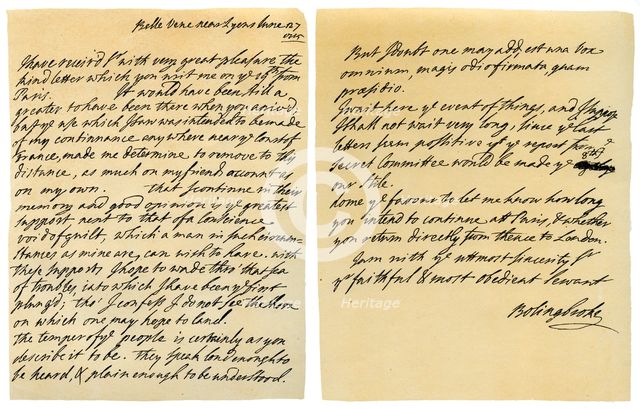 Belle Vene near Lyons June 27
1715
I have receiv'd Sr with very great pleasure the
kind letter which you writ me on ye 19th from
Paris. It would have been still a
greater to have been there when you arriv'd
but ye use which was intended to be made
of my continuance any where near ye Coast of
France, made me determine to remove to this
distance, as much on my friends account as
on my own. That I continue in their
memory and good opinion is ye greatest
support next to that of a Conscience
void of guilt, which a man in such circum
stances as mine are, can wish to have. with
these supports I hope to wade thro' that sea
of troubles into which I have been ye first
plung'd; tho' I confess I do not see the shore
on which one may hope to land.
the temper of ye people is certainly as you
describe it to be. They speak loud enough to
be heard, & plain enough to be understood.
But I doubt one may add, est una vox
omnium, magis odio firmata, quam
præsidio.
I wait here ye event of things, and I suppose
I shall not wait very long, since ye last
letters from positive yt ye report
Secret Committee would be made ye 8th
our Stile.
done ye favour to let me know how long
you intend to continue att Paris, & whether
you return directly from thence to London.
I am with ye uttmost sincerity Sr
yr faithful & most obedient Servant
Bolingbroke
Heritage
Heritage